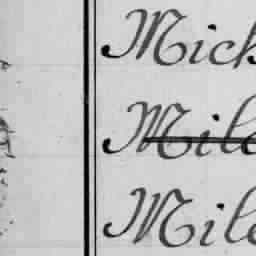 Mick
Mile
Mile